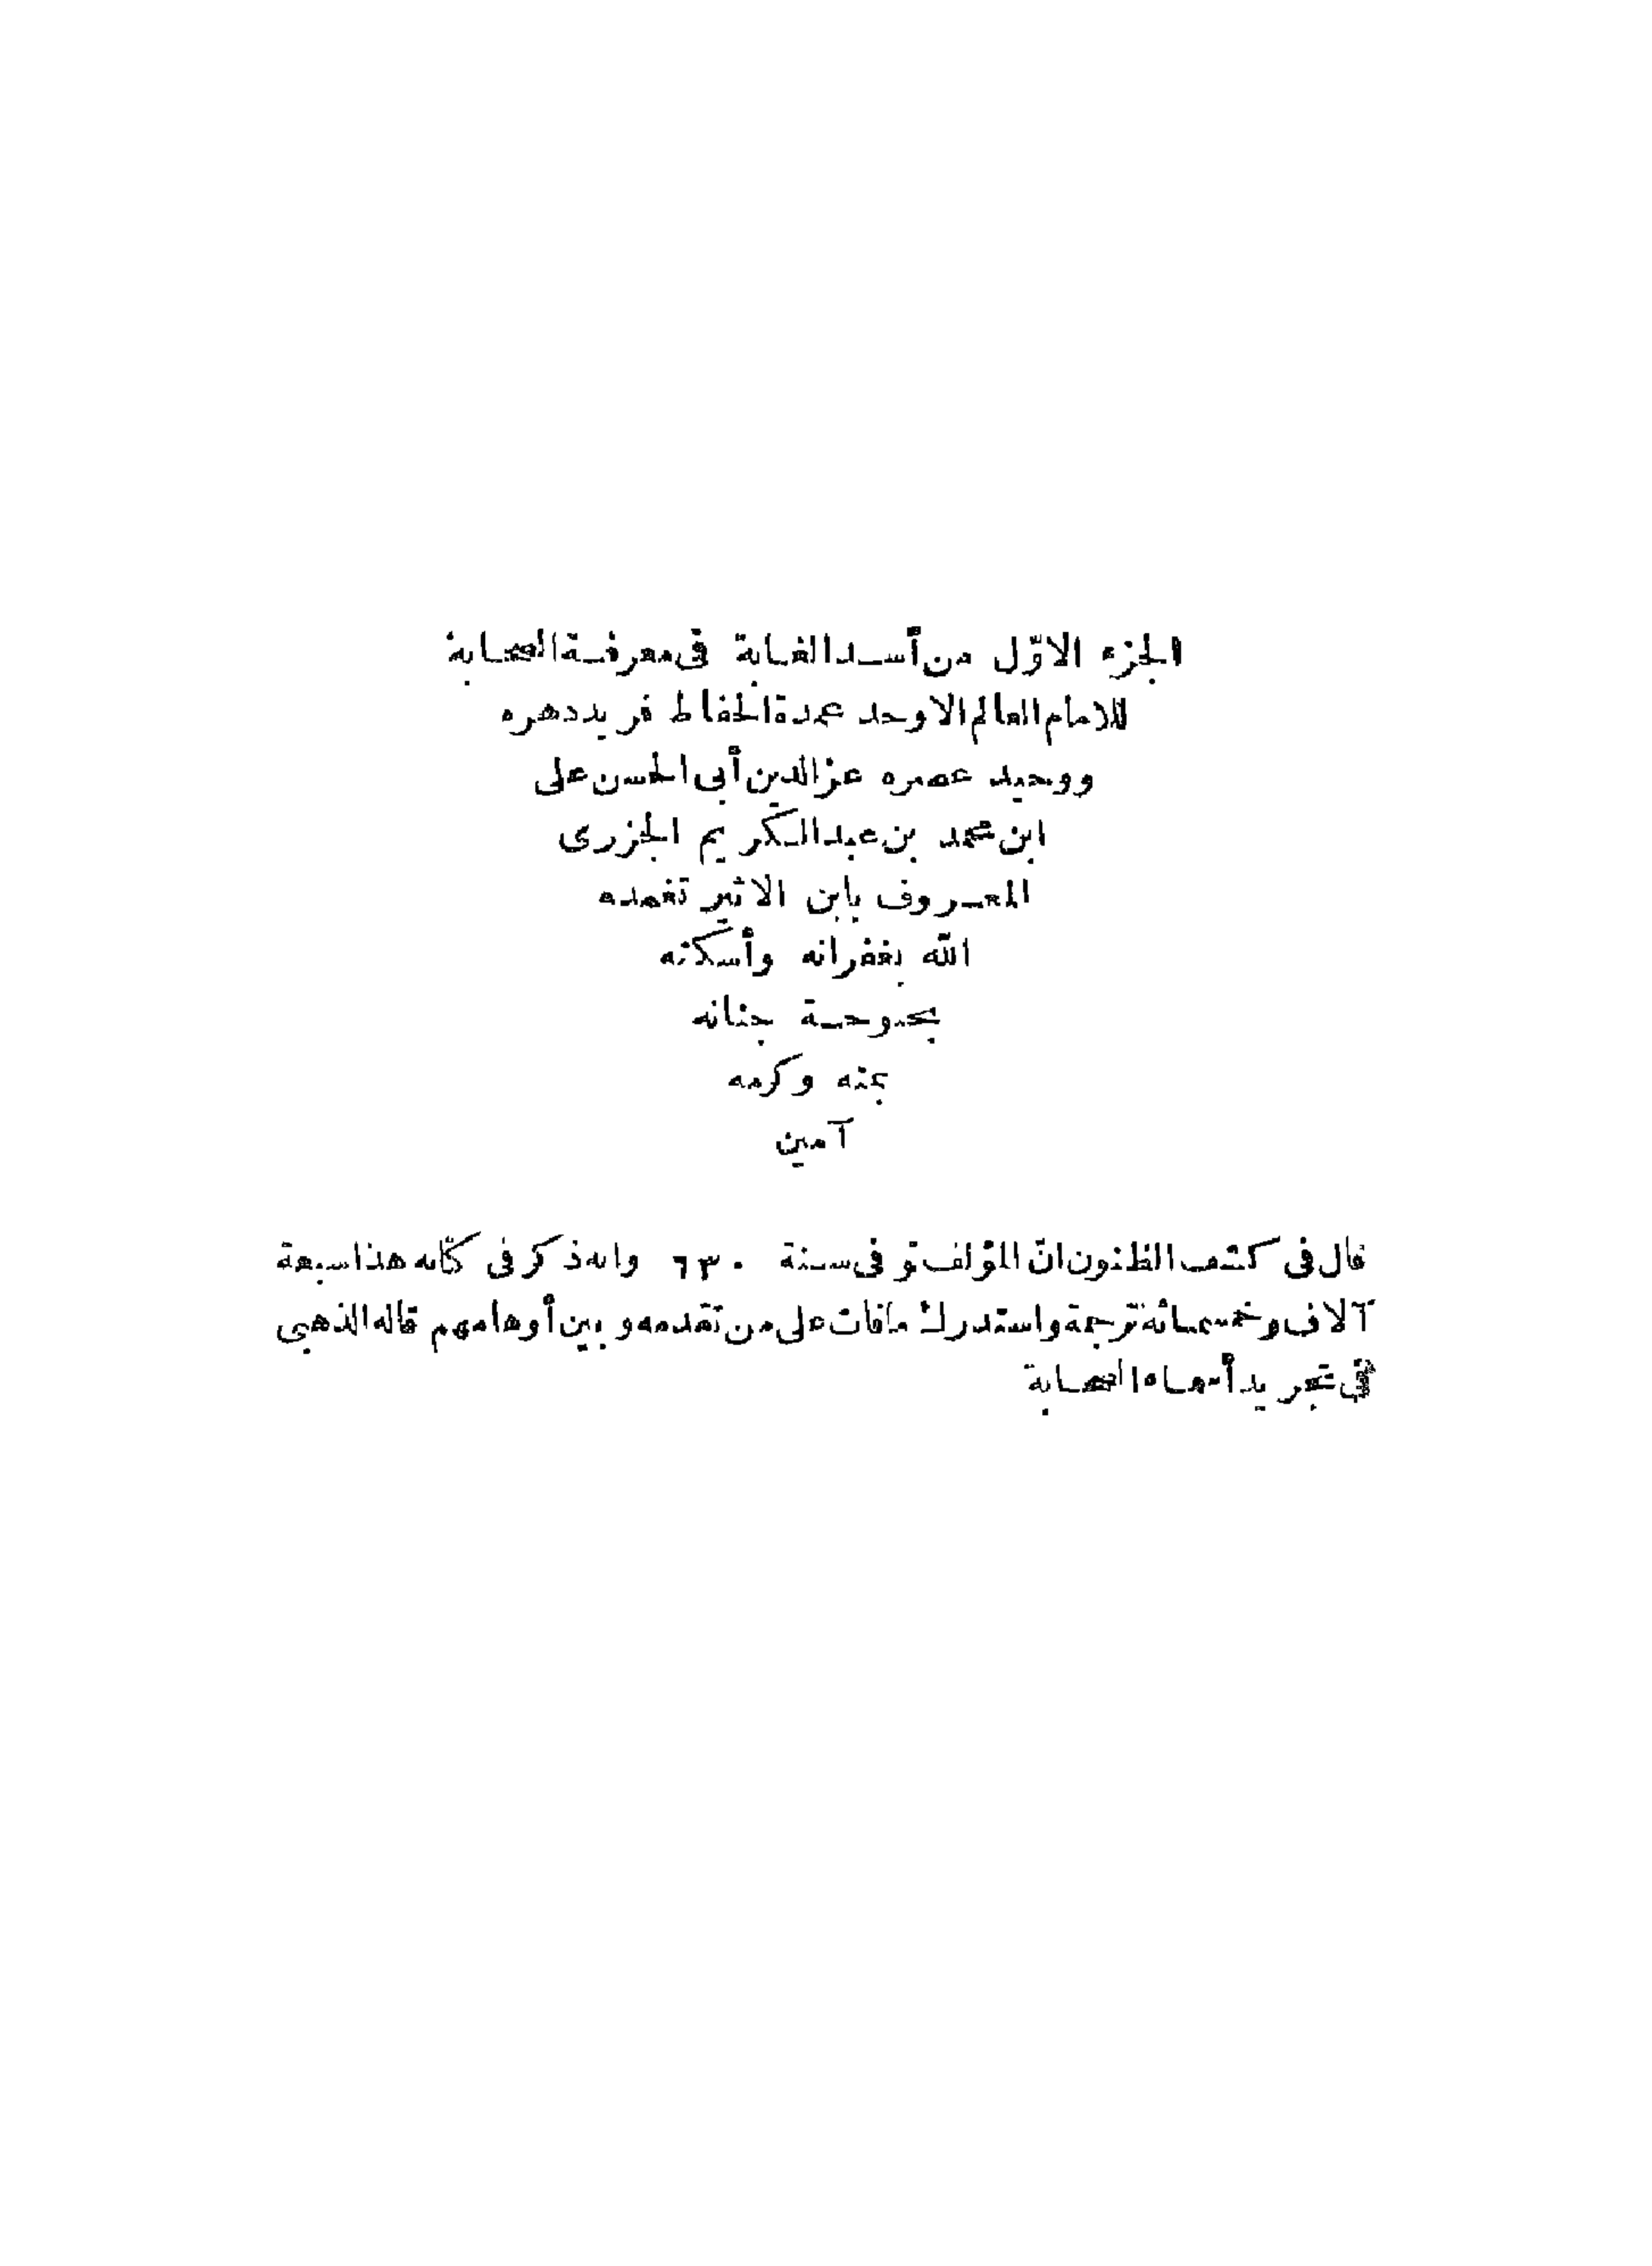 الجزء الاوّل من أسد الغابة فى معرفة الصحابة
للامام العالم الاوحد عمدة الحفاظ فريد دهره
ووحيد عصره عز الدين أبى الحسن على
ابن محمد بن عبد الكريم الجزرى
المعروف بابن الاثير تغمده
الله بغفرانه وأسكنه
بحبوحة جنانه
بمنه وكرمه
آمين
قال فى كشف الظنون انّ المؤلف توفى سنة ٦٣٠ وانه ذكر فى كتابه هذا سبعة
آلاف وخمسمائة ترجمة واستدرك مافات على من تقدمه وبين أوهامهم قاله الذهبى
فى تجريد أسماء الصحابة